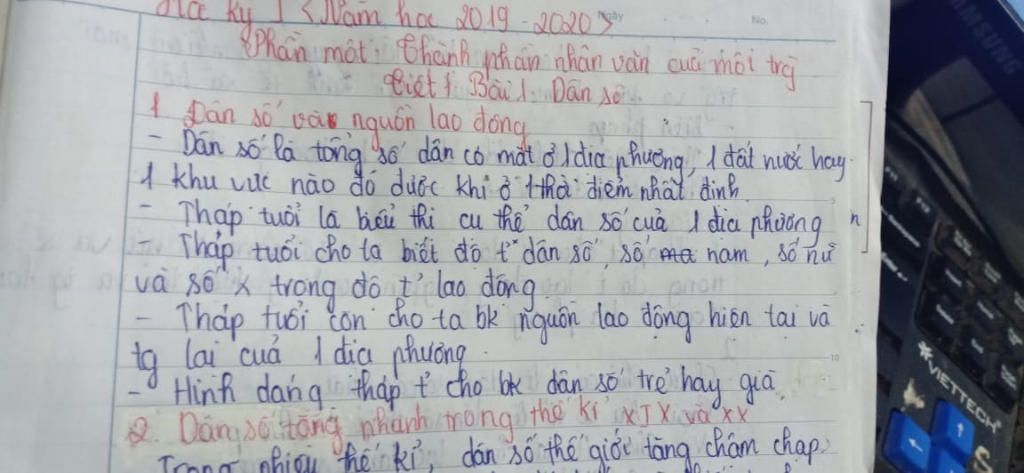 Học kỳ I <Năm học 2019-2020>
Ngày
No.
Phần một: Thành phần nhân văn của môi trg
Tiết 1 Bài 1. Dân số
1 Dân số và nguồn lao động
- Dân số là tổng số dân có mặt ở 1 địa phương, 1 đất nước hay
1 khu vực nào đó được khi ở 1 thời điểm nhất định
- Tháp tuổi là biểu thị cụ thể dân số của 1 địa phương
- Tháp tuổi cho ta biết độ t' dân số, số nam, số nữ
và số x trong độ t' lao động
- Tháp tuổi còn cho ta bk nguồn lao động hiện tại và
tg lai của 1 địa phương.
- Hình dáng tháp t' cho bk dân số trẻ hay già
2. Dân số tăng nhanh trong thế kỉ XIX và XX
Trong nhiều thế kỉ, dân số thế giới tăng chậm chạp.
10
SAMSUNG
VIETTECH